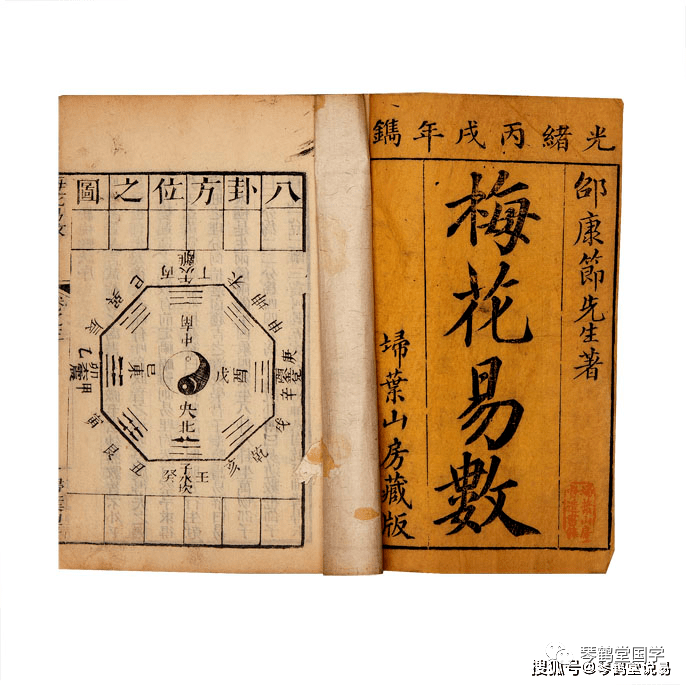 光緒丙戌年鐫
邵康節先生著
梅花易數
埽葉山房藏版
八卦方位之圖
丁午丙
離火
未坤申
庚酉辛
戌乾亥
壬子癸
水坎
丑艮寅
甲卯乙
辰巽巳
南
中
東
巳
戊
酉
央
北
琴鹤堂国学
搜狐号@琴鹤堂说易